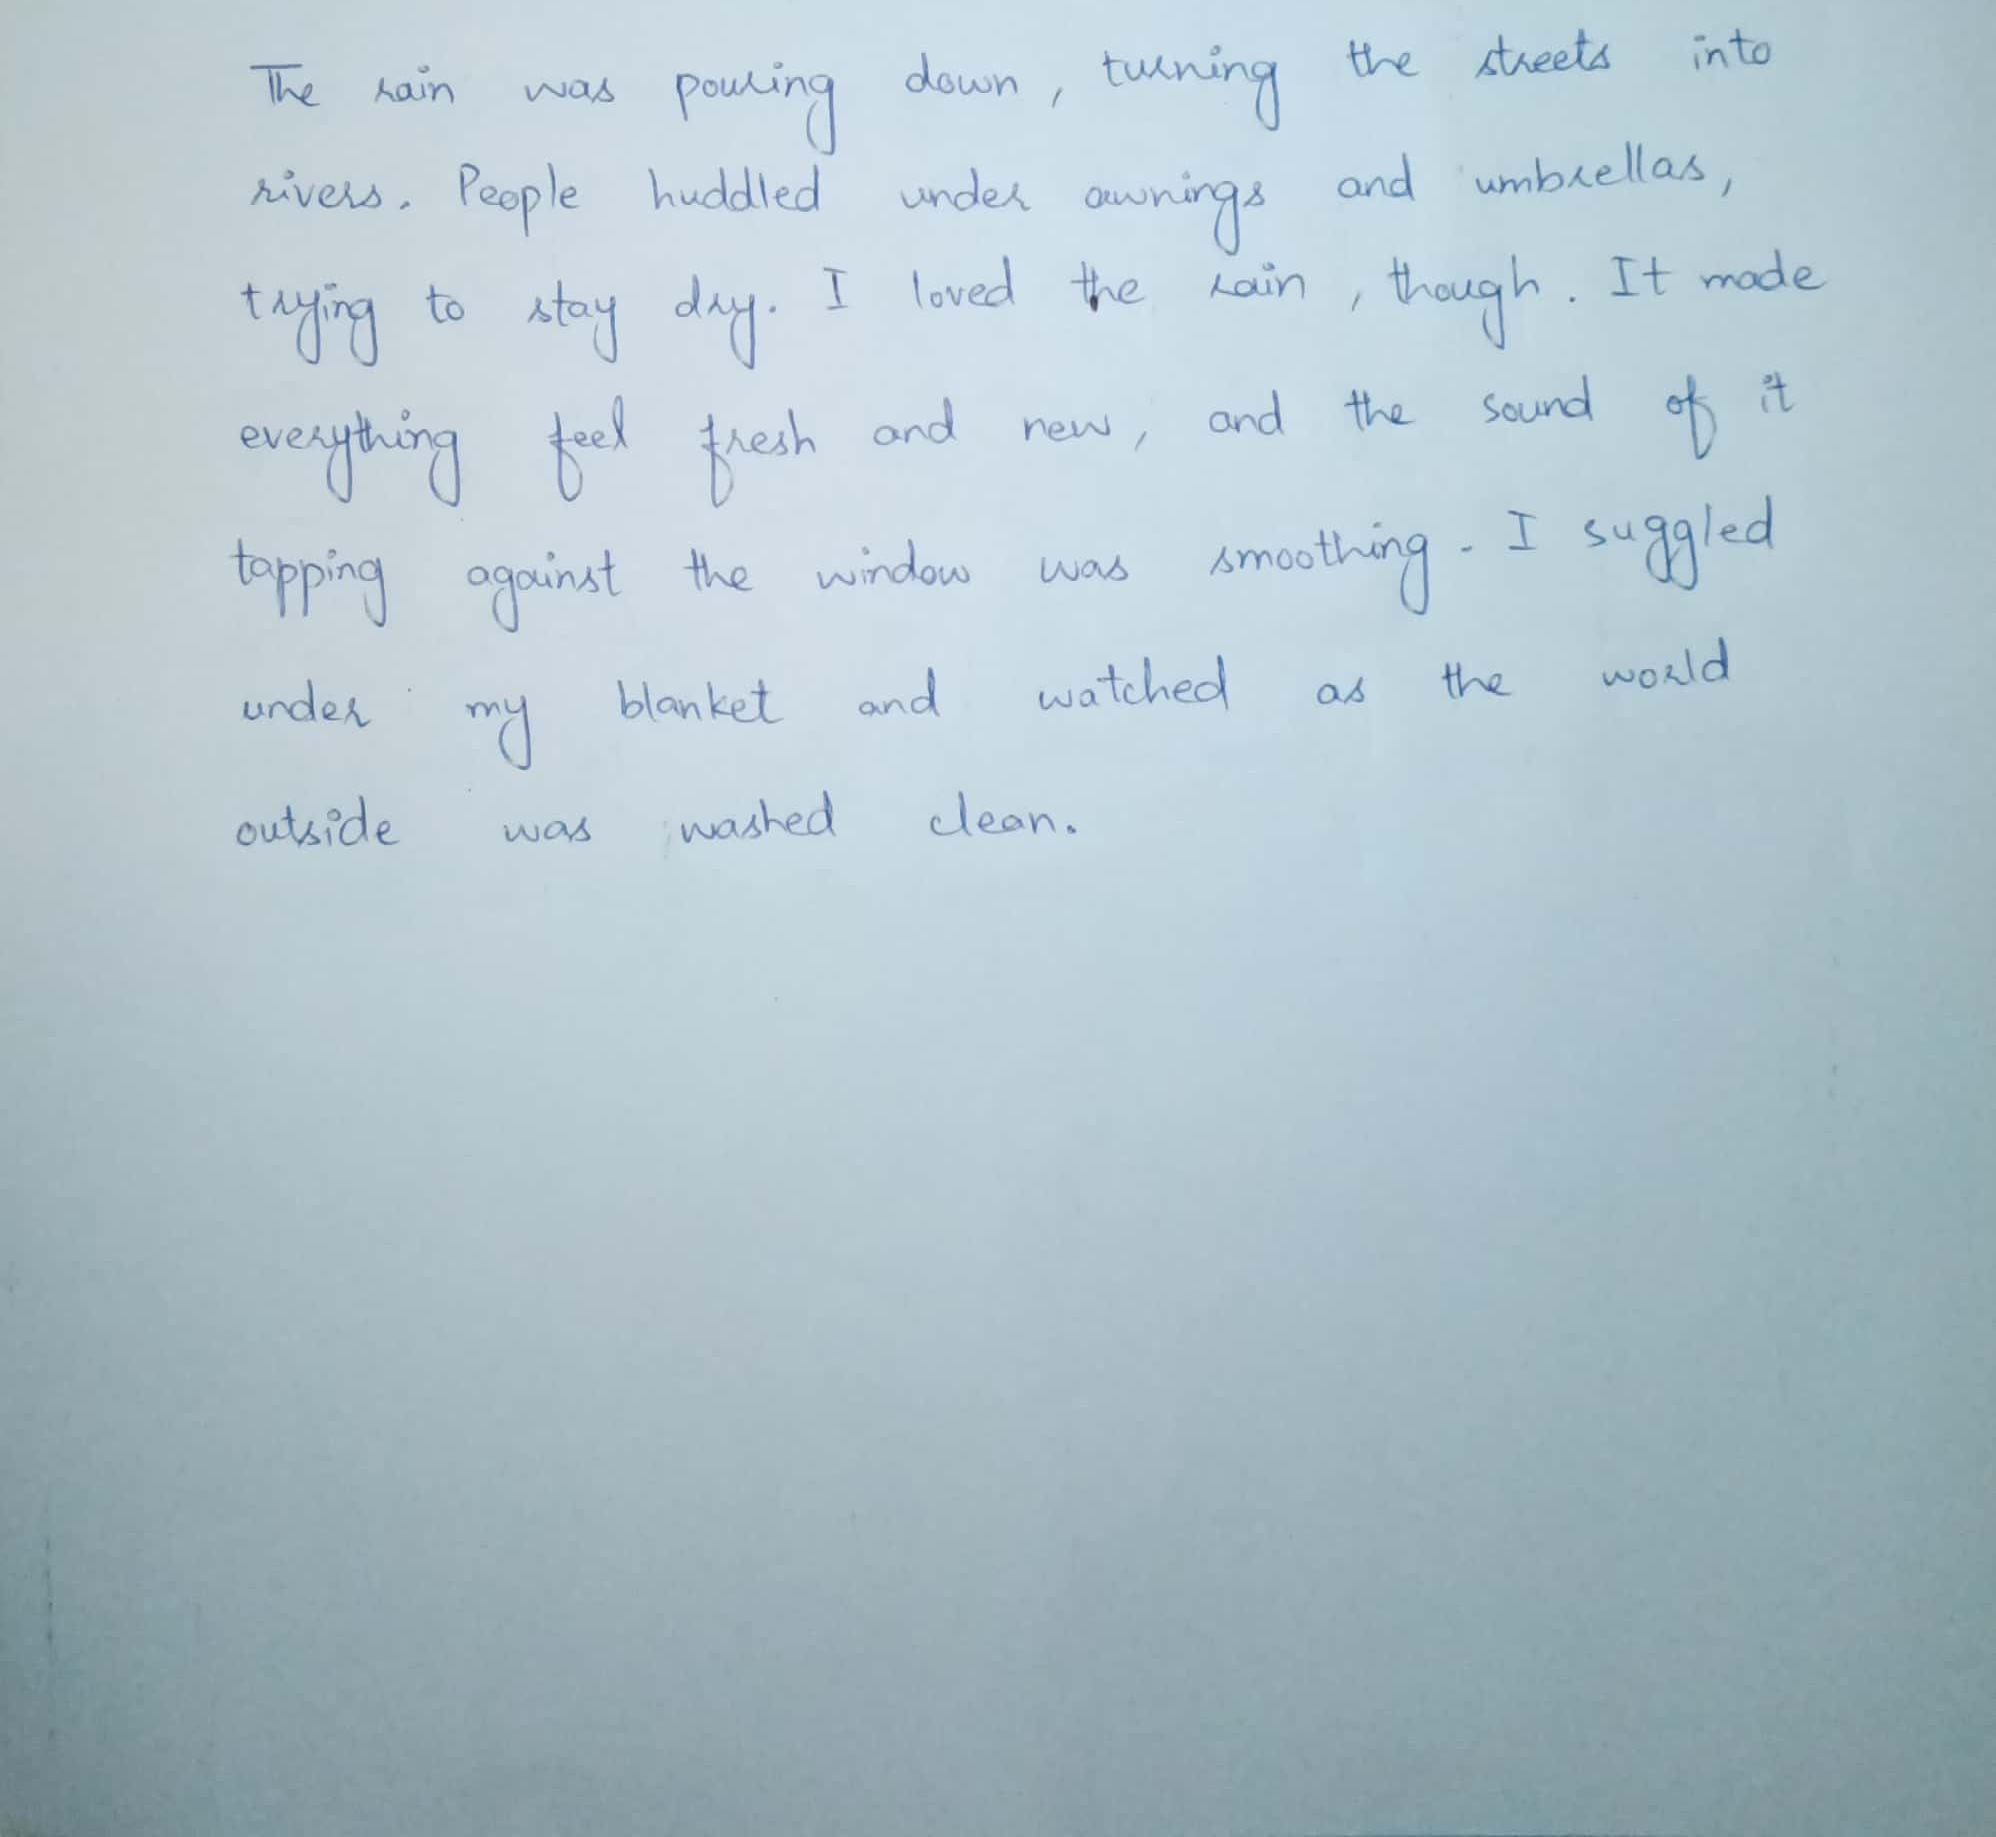 The rain was pouring down, turning the streets into
rivers. People huddled under awnings and umbrellas,
trying to stay dry. I loved the rain, though. It made
everything feel fresh and new, and the sound of it
tapping against the window was smoothing. I suggled
under my blanket and watched as the world
outside was washed clean.